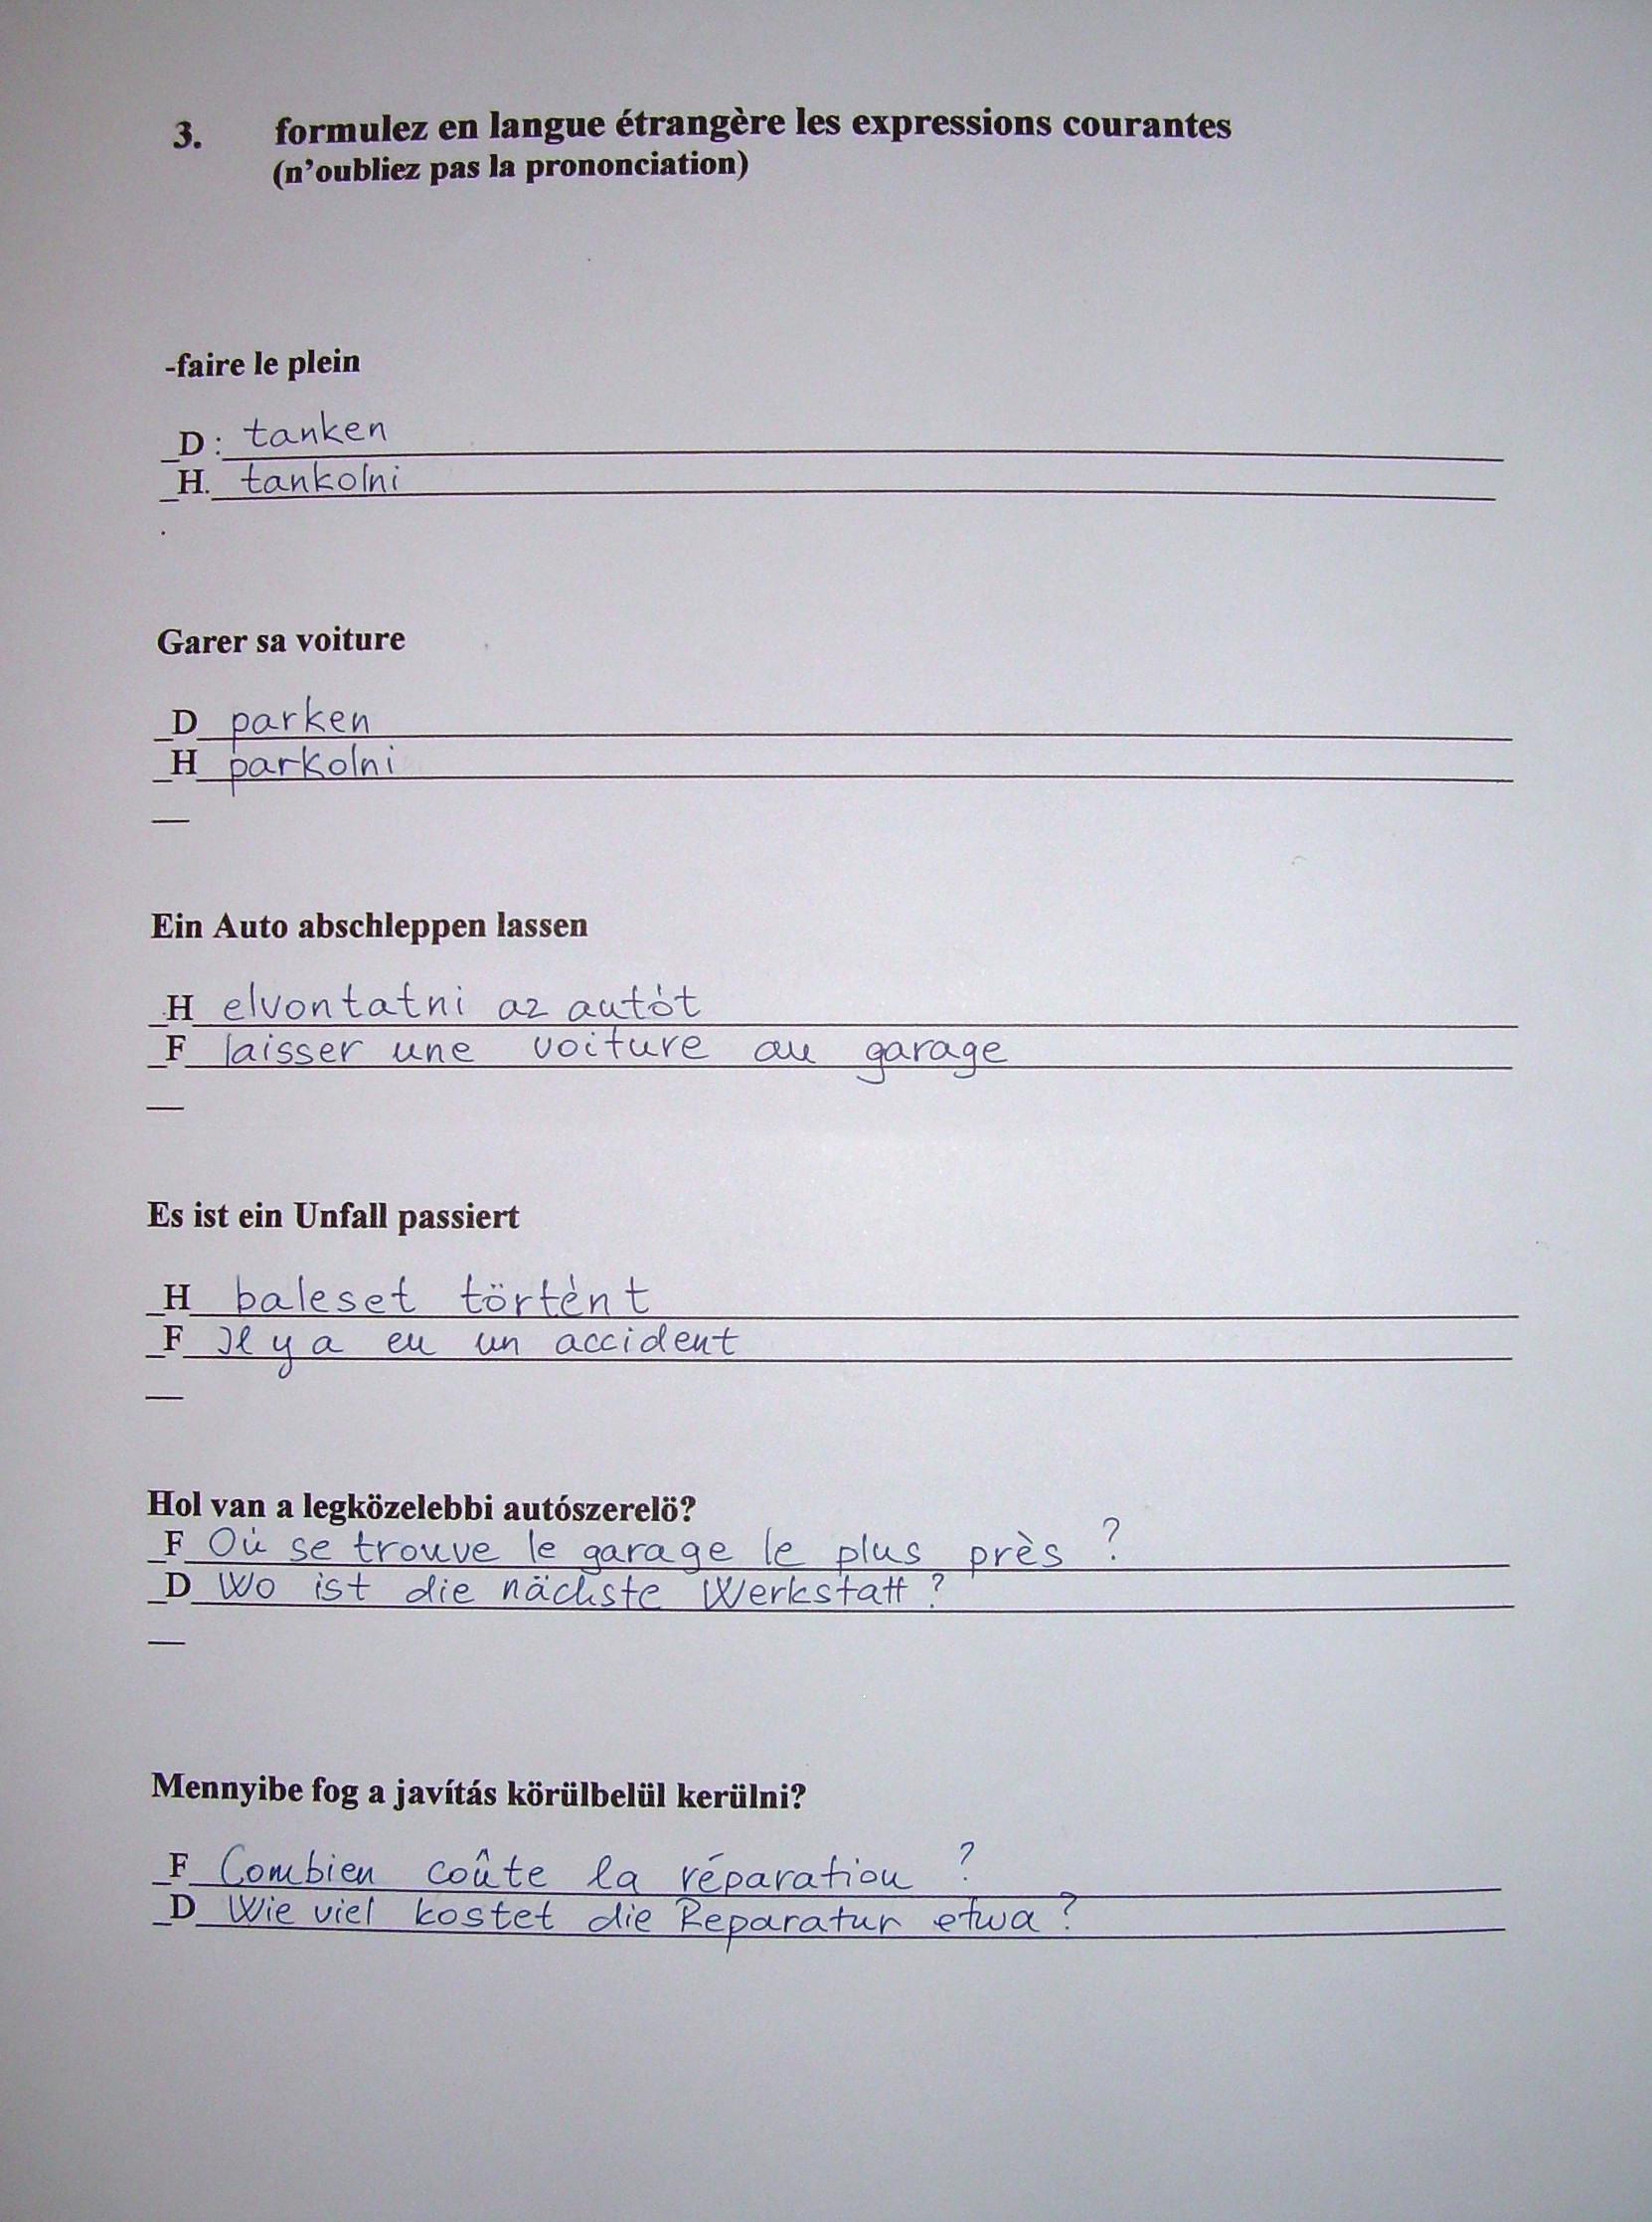 3. formulez en langue étrangère les expressions courantes
(n'oubliez pas la prononciation)
-faire le plein
_D:_ tanken
_H._ tankolni
.
Garer sa voiture
_D_ parken
_H_ parkolni
__
Ein Auto abschleppen lassen
_H_ elvontatni az autót
_F_ laisser une voiture au garage
__
Es ist ein Unfall passiert
_H_ baleset történt
_F_ Il y a eu un accident
__
Hol van a legközelebbi autószerelö?
_F_ Où se trouve le garage le plus près ?
_D_ Wo ist die nächste Werkstatt ?
__
Mennyibe fog a javítás körülbelül kerülni?
_F_ Combien coûte la réparation ?
_D_ Wie viel kostet die Reparatur etwa ?